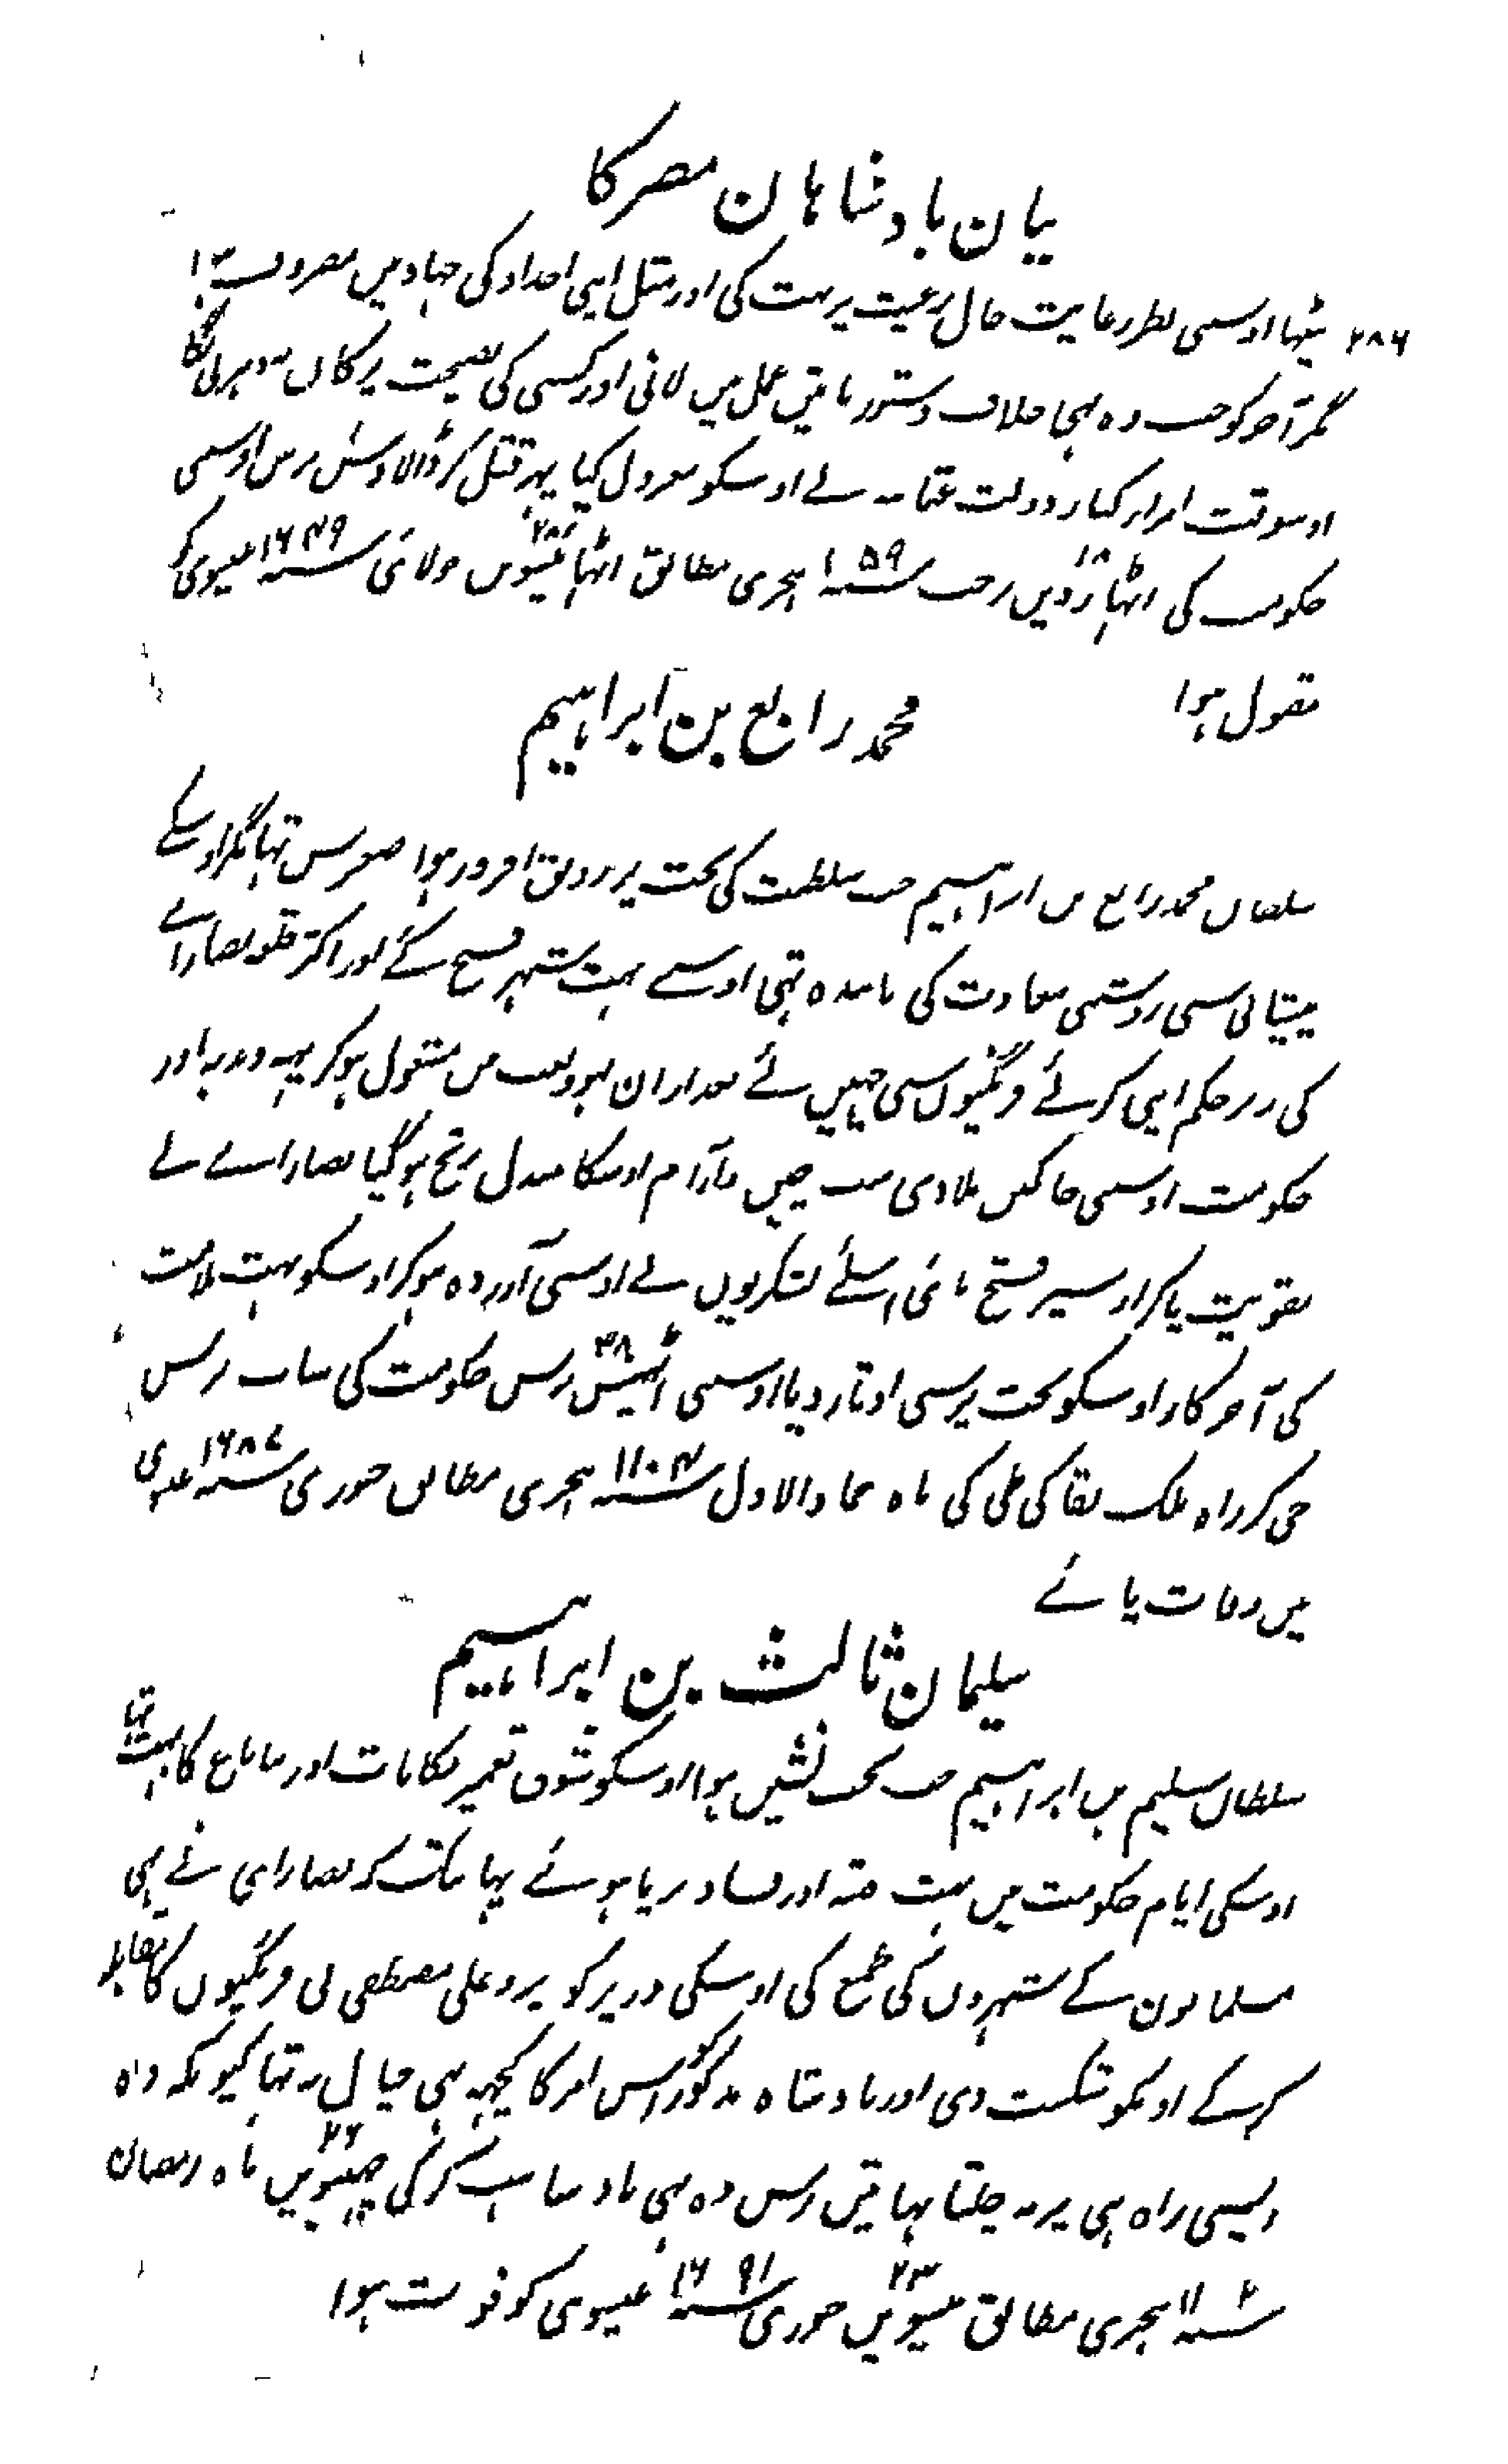 بیان بادشاہان مصر کا
۲۸۶ بیٹھا اوسنی نظر رعایت حال رعیت پر بہت کی اور مثل اپنی اجداد کی جہاد میں مصروف رہا
مگر آخر کو جب وہ بیجا خلاف دستور باتیں عمل میں لائی اور کسی کی نصیحت پر کان نہ دہرنی لگا
اوسوقت امرار کبار دولت عثمانیہ نے اوسکو معزول کیا پہر قتل کر ڈالا دس برس اوسنی
حکومت کی اٹہارویں ۱۸ رجب سنہ ۱۰۵۹ ہجری مطابق اٹہائیسویں ۲۸ جولائی سنہ ۱۶۴۹ عیسوی کو
مقتول ہوا
محمد رابع بن ابراہیم
سلطان محمد رابع بن ابراہیم جب سلطنت کی تخت پر رونق افروز ہوا صغر سن تہا مگر اوسکے
پیشانی سی روشنی سعادت کی تابندہ تہی اوسے بہت شہر فتح کئے اور اکثر قلعہ نصارائے
کی زیر حکم اپنی کرئے فرنگیوں سی چہیں لئے بعد ازان لہو ولعب میں مشغول ہوکر یہہ دبدبہ اور
حکومت اوسنی خاک میں ملادی سب چین وآرام اوسکا مبدل برنج ہوگیا نصارائے نے
تقویت پاکر اوسپر فتح پائی اسلئے لشکریوں نے اوسسی آزردہ ہوکر اوسکو بہت ملامت
کی آخر کار اوسکو تخت پر سی اوتار دیا اوسنی اڑتیس ۳۸ برس حکومت کی سات برس
جی کر راہ ملک بقا کی لی کی ماہ جمادالاول سنہ ۱۱۰۴ ہجری مطابق جنوری سنہ ۱۶۸۷ عیسوی
میں وفات پائے
سلیمان ثالث بن ابراہیم
سلطان سلیم بن ابراہیم جب تخت نشین ہوا اوسکو شوق تعمیر مکانات اور باغ کا بہت تہا
اوسکی ایام حکومت میں بہت فتنہ اور فساد برپا ہوئے یہانتک کہ نصارای نے بہی
مسلمانون کے شہروں کی طمع کی اوسکی وزیر کوپرو علی مصطفی نی فرنگیوں کا مقابلہ
کرکے اونکو شکست دی اور بادشاہ مذکور کو اس امر کا کچہہ بہی خیال نہ تہا کیونکہ وہ
ایسی راہ ہی پر نہ چلتا تہا تین برس وہ بہی بادشاہت کرکی چہبیسویں ۲۶ ماہ رمضان
سنہ ۱۱۰۲ ہجری مطابق تیئیسویں ۲۳ جنوری سنہ ۱۶۹۱ عیسوی کو فوت ہوا